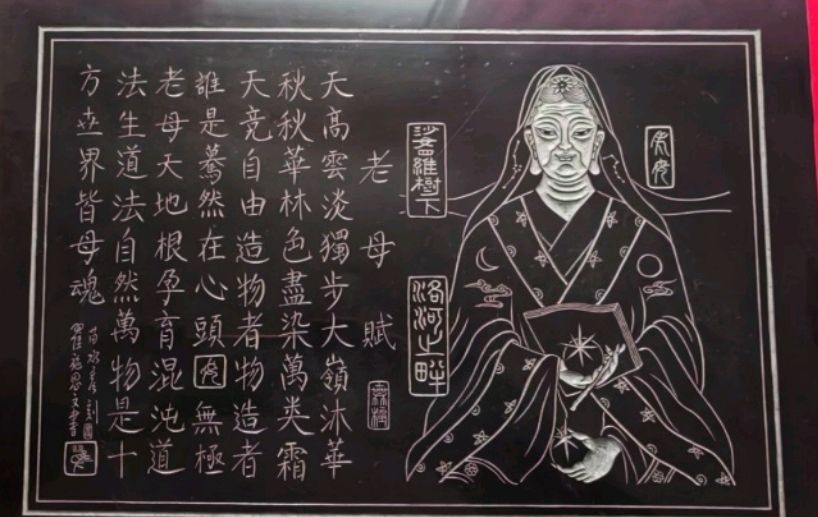 洛河之畔
老母賦
天高雲淡獨步大嶺沐華
秋秋華林色盡染萬类霜
天竞自由造物者物造者
誰是驀然在心頭無極
老母天地根孕育混沌道
法生道法自然萬物是十
方世界皆母魂